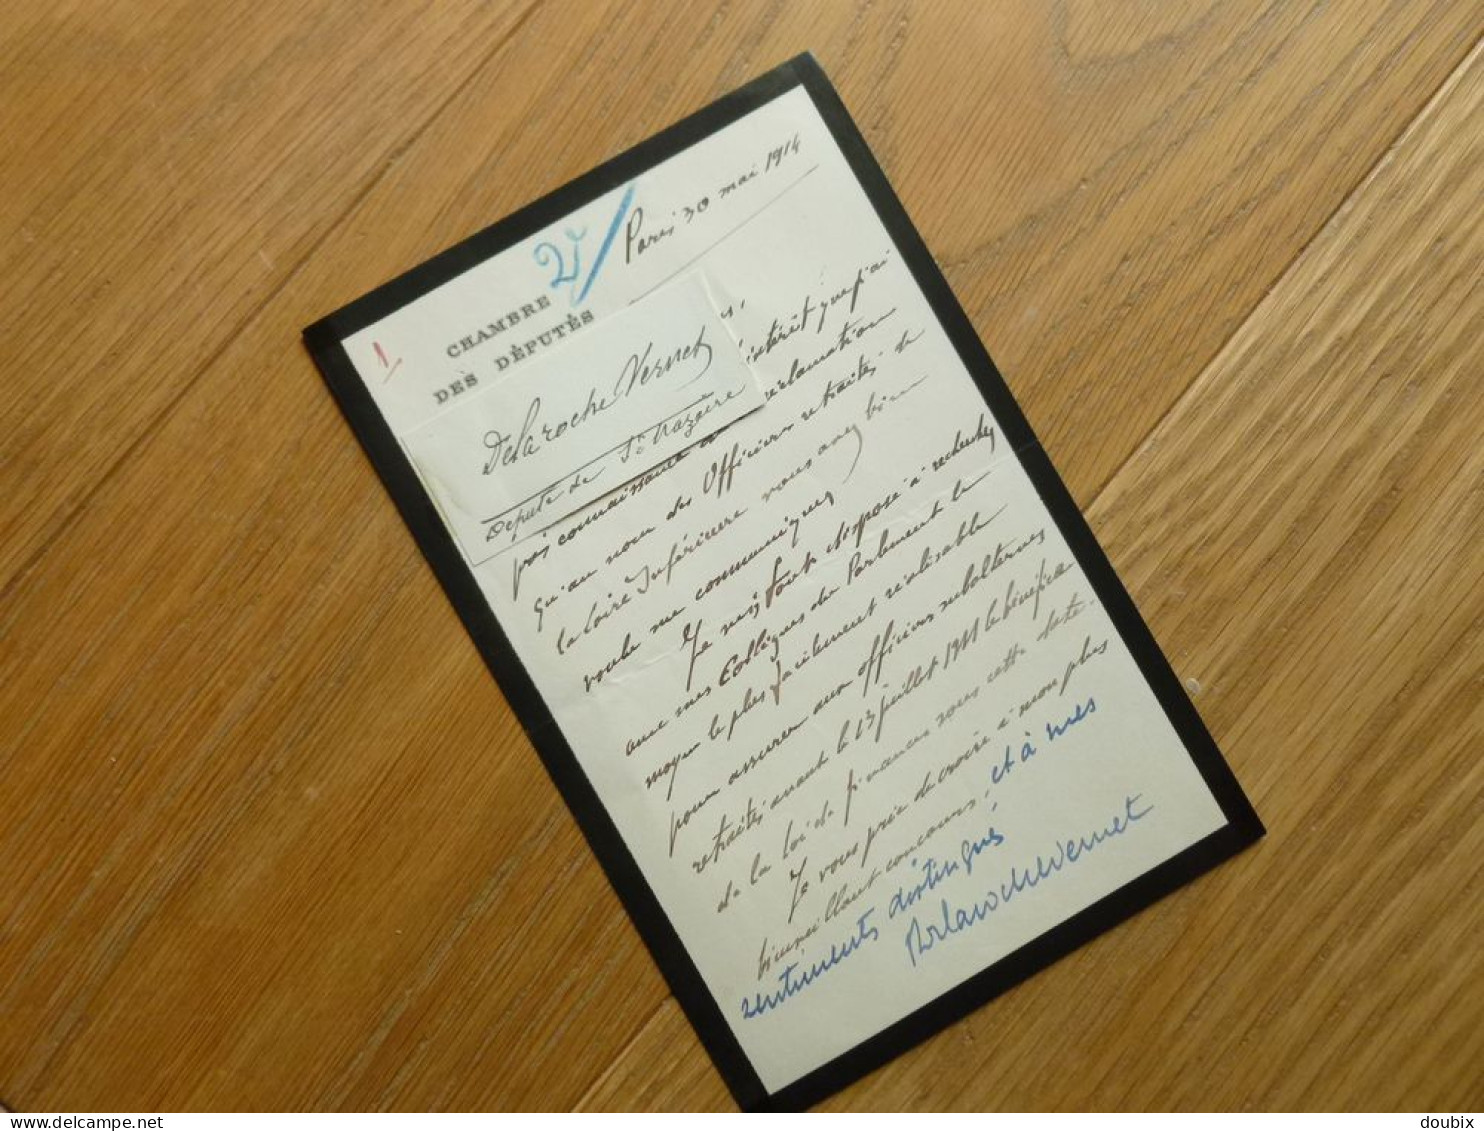 1
2
CHAMBRE
DES DÉPUTÉS
Paris 30 mai 1914
Delaroche Vernet
Député de St Nazaire
intérêt que j'ai
pris connaissance réclamation
qu'au nom des Officiers retraités de
la Loire Inférieure vous avez bien
voulu me communiquer
Je suis tout disposé à rechercher
avec mes Collègues du Parlement le
moyen le plus facilement réalisable
pour assurer aux officiers subalternes
retraités avant le 13 juillet 1911 le bénéfice
de la loi de finances sous cette date.
Je vous prie de croire à mon plus
bienveillant concours, et à mes
sentiments distingués
Delaroche Vernet
doubix